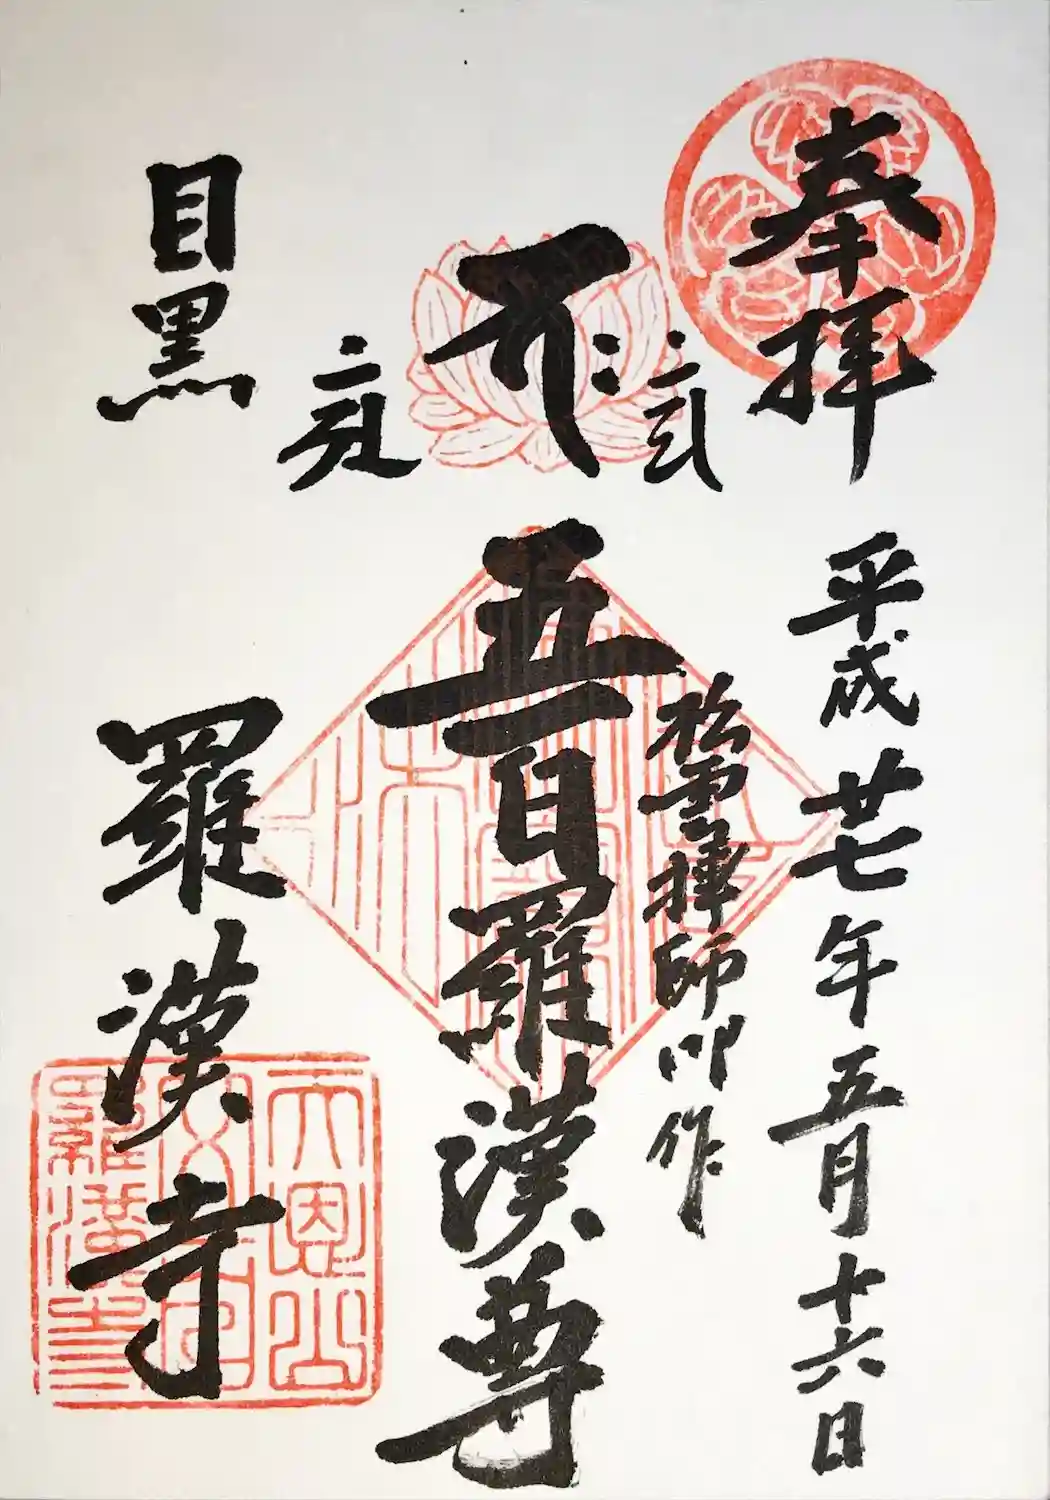 奉拝
平成廿七年五月十六日
松雲禅師御作
五百羅漢尊
目黒
羅漢寺
天恩山
羅漢寺